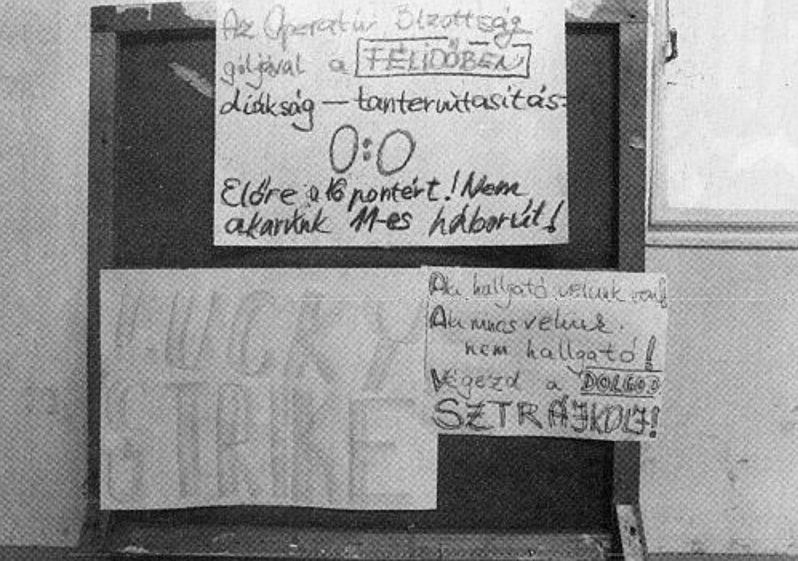 Az Operatív Bizottság
góljával a FÉLIDŐBEN
diákság — tantervutasítás:
0:0
Előre a 16 pontért! Nem
akarunk 11-es háborút!
LUCKY
STRIKE
Aki hallgató velünk van!
Aki nincs velünk.
nem hallgató!
Végezd a DOLGOD
SZTRÁJKOLJ!